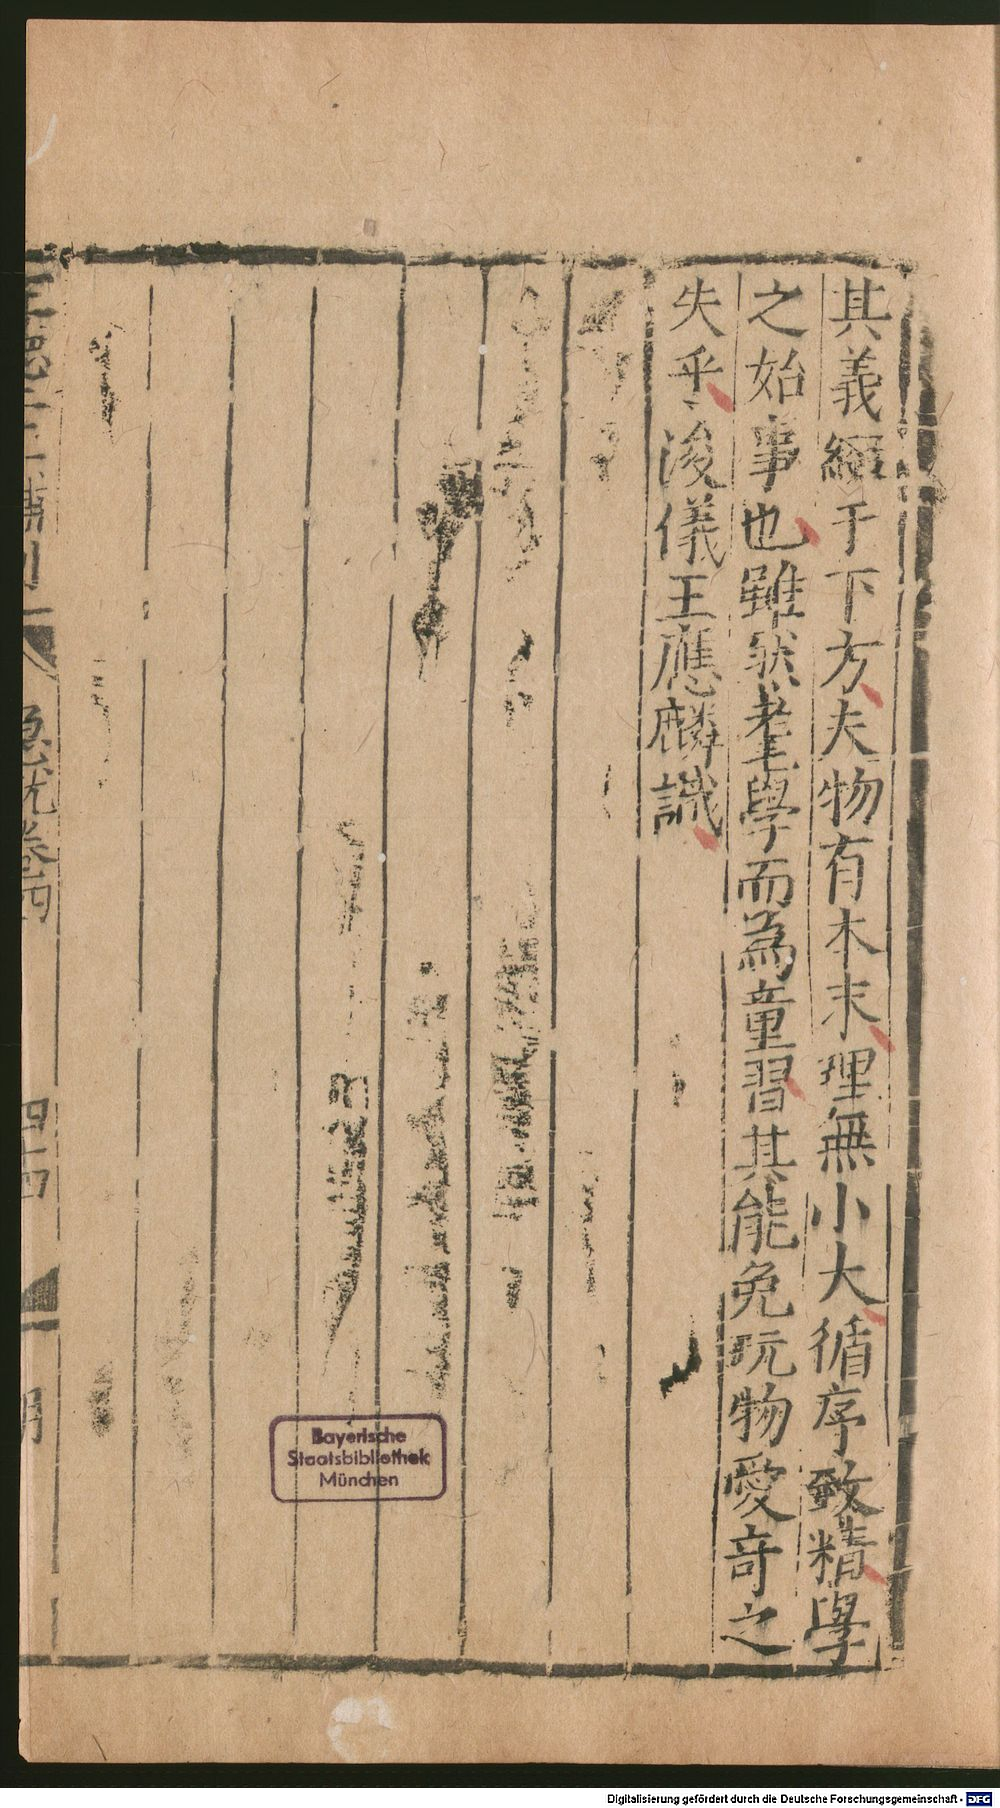 其義繦于下方夫物有本末理無小大循序致精學
之始事也雖然耄學而為童習其能免玩物愛奇之
失乎浚儀王應麟識
正德十二補刊
急就卷四
四十四
Bayerische
Staatsbibliothek
München
Digitalisierung gefördert durch die Deutsche Forschungsgemeinschaft - DFG